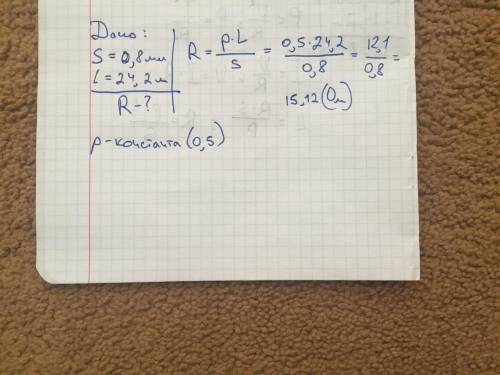 Дано:
S = 0,8 мм
L = 24,2 м
R - ?
R = p·L / S = 0,5·24,2 / 0,8 = 12,1 / 0,8 =
15,12 (Ом)
p - константа (0,5)